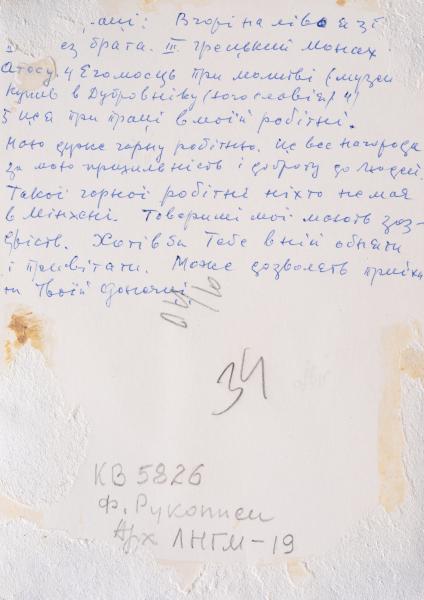 праці: Вгорі наліво я зі
ез брата. III. грецький монах
Атосу. 4 Єгомосць при молитві (музей
купив в Дубровніку (Югославія) 4)
5 це я при праці в моїй робітні.
Маю дуже гарну робітню. Це все нагорода
за мою прихильність і доброту до людей.
Такої гарної робітні ніхто не має
в Мінхені. Товариші мої мають заз-
дрість. Хотів би Тебе в ній обняти
і привітати. Може дозволять приїха
ти Твоїй донечці
34
КВ 5826
ф. Рукописи
Арх ЛНГМ-19